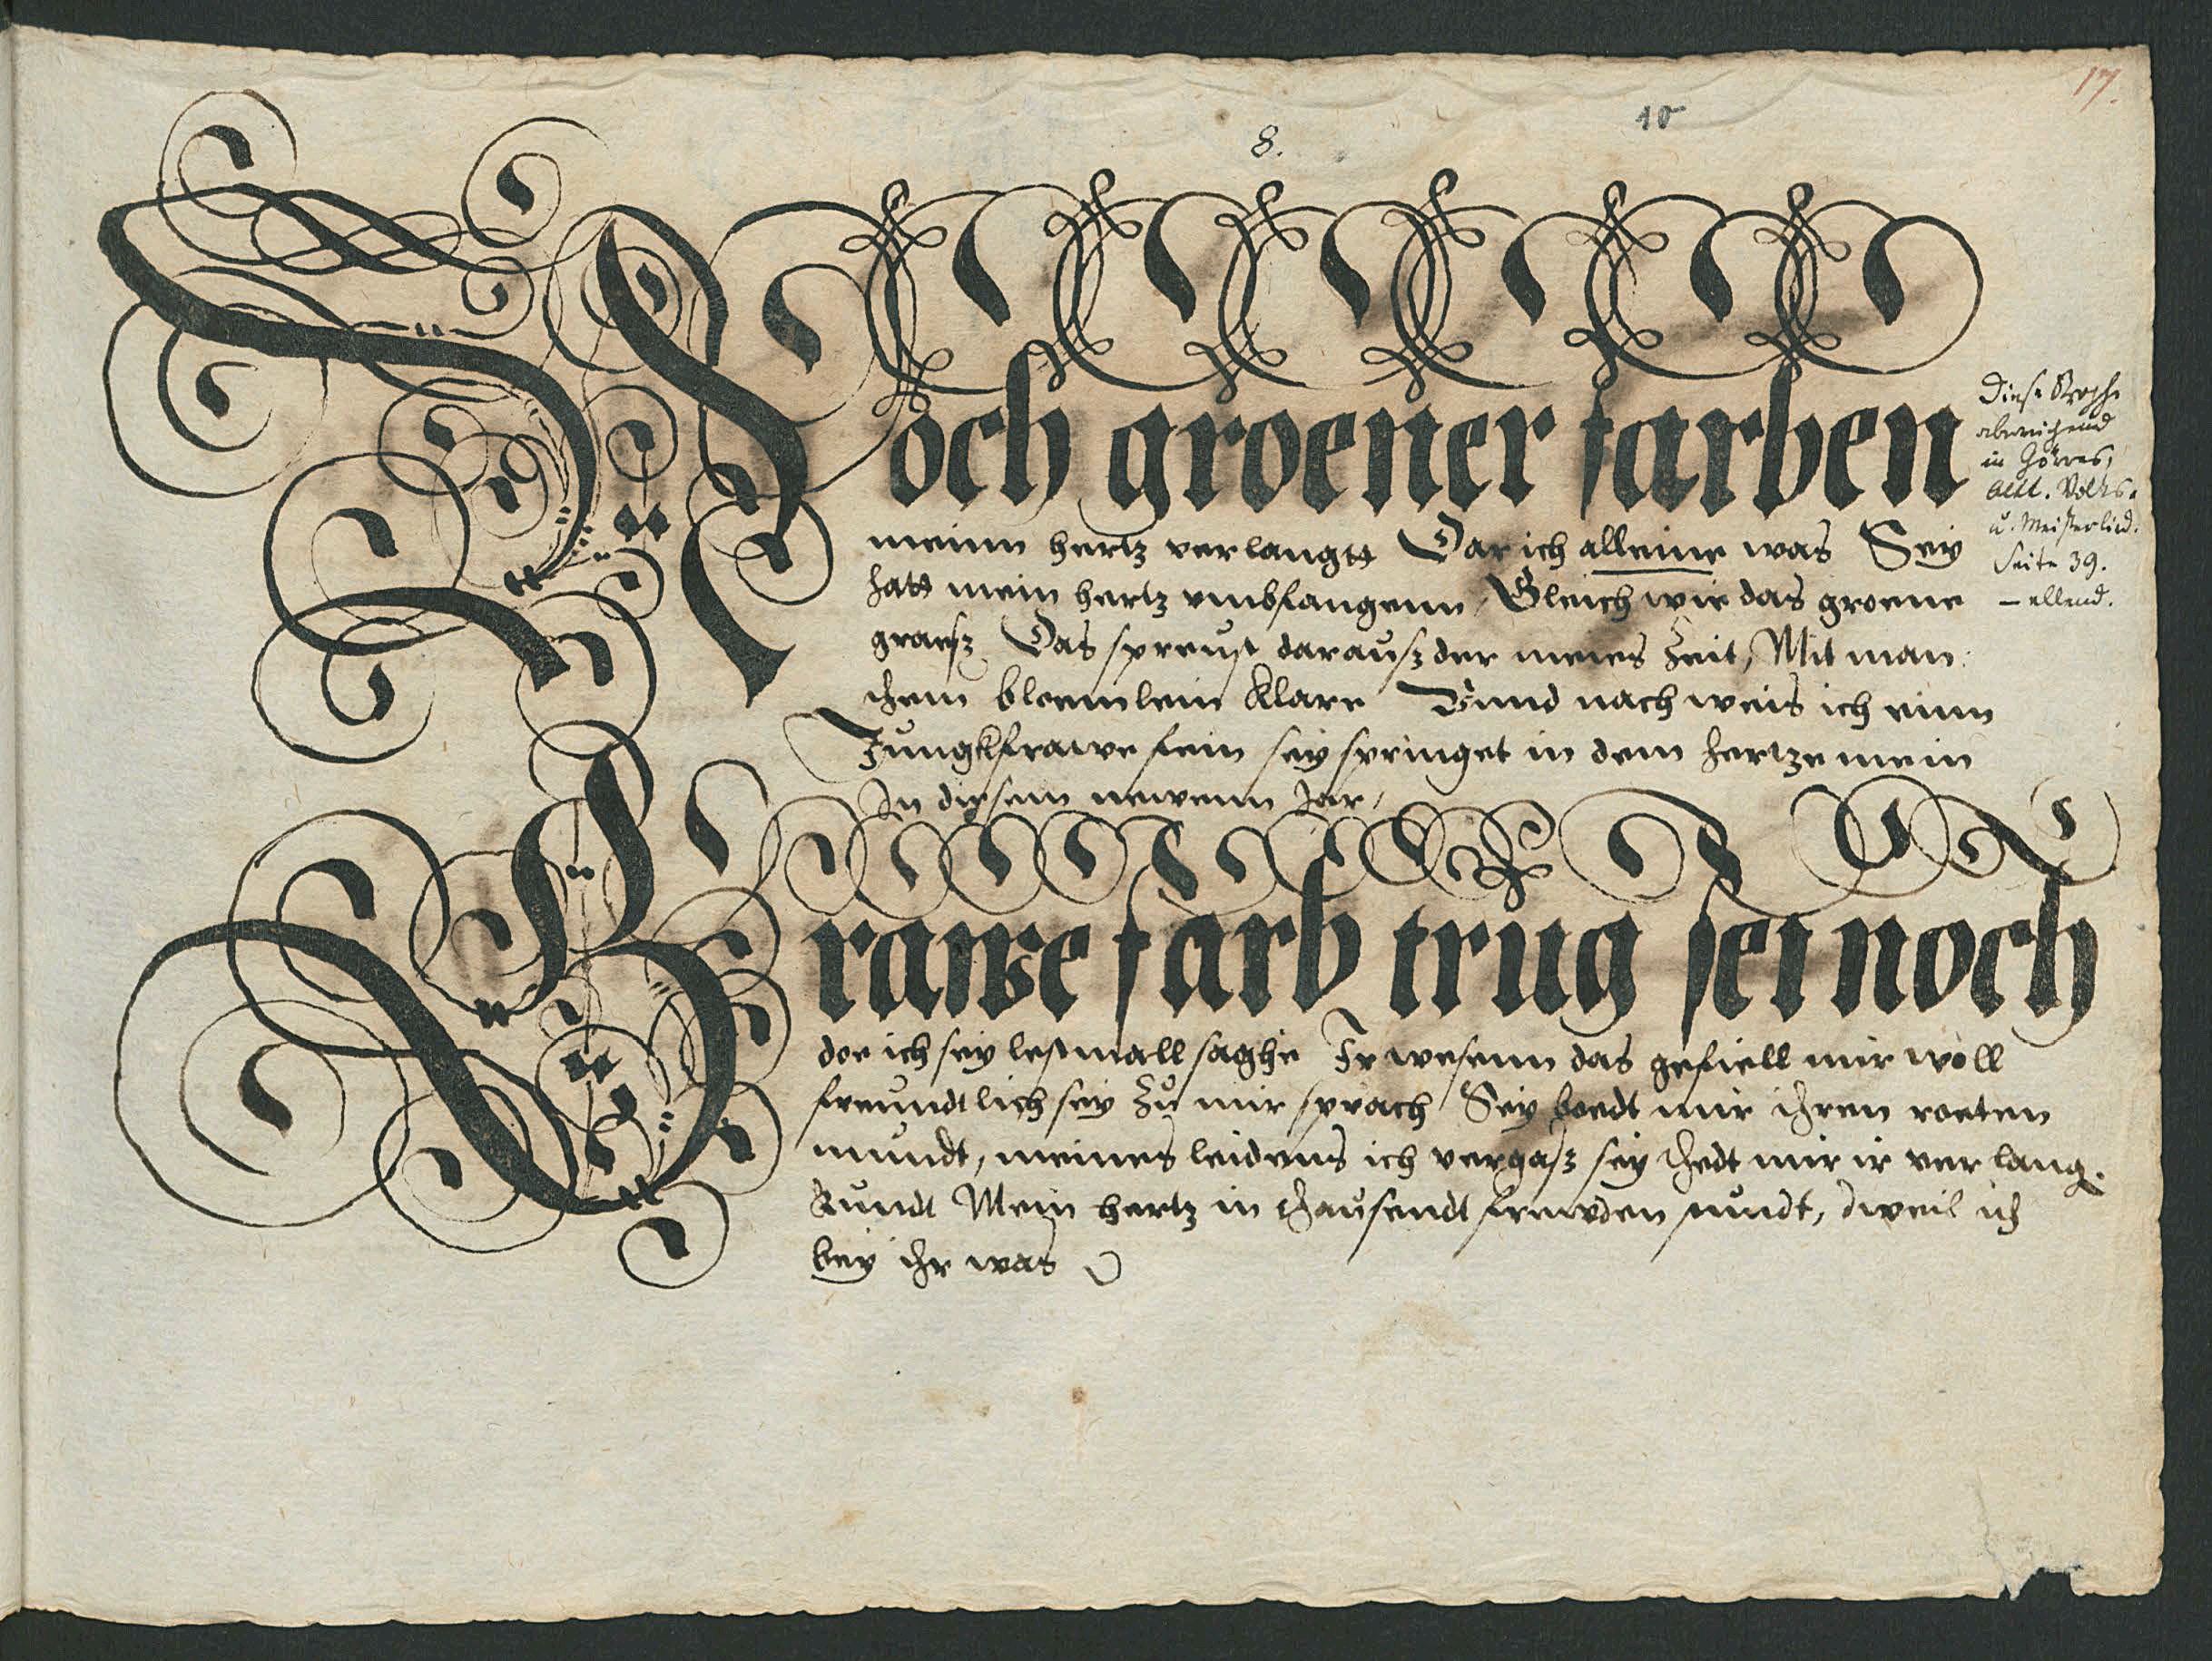 17.
10
8.
Noch groener farben
meinn hertz verlangtt Dar ich alleine was Sey
hatt mein hertz vmbfangenn, Gleich wie das groene
graesz Das spreust darausz der meies Zeit, Mit man:
chem bloemlein klare Vnnd nach weis ich einn
Jungkfrawe fein sey springet in dem hertze mein
In diesem newenn Jar,
Diese Strophe
abweichend
in Görres,
altt. Volks-
u. Meisterlied.
Seite 39.
– ellend.
Grawe farb trug sei noch
doe ich sey lestmall saghe Ir wesenn das gefiell mir woll
freundtlich sey Zů mir sprach Sey boedt mir ihren roeten
mundt, meines leidens ich vergasz sey thedt mir ir verlang.
kundt Mein hertz in thausendt frewden stundt, dweil ich
bey ihr was